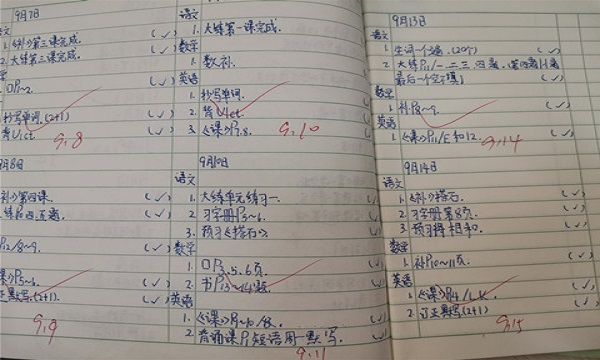 9月7日
语文
1.《补》第三课完成. (✓)
2. 大练第三课完成. (✓)
口P~2. (✓)
抄写单词.(2+1) (✓)
背U1ct (✓)
9,8
9月8日
补》第四课. (✓)
练P四、五题. (✓)
P12/8~9. (✓)
课》P5~6. (✓)
正默写.(2+1). (✓)
9,9
语文
1. 大练第一课完成. (✓)
数学
1. 数补.
英语
1. 抄写单词.
2. 背U1ct.
3.《课》P7.8.
9,10
9月10日
语文
1. 大练单元练习一.
2. 习字册P3~6.
3. 预习《搭石》.
数学
1. 口P3.5.6页.
2. 书P13~14题.
英语
1.《课》P9~10/8.
2. 背诵课P1短语周一默写.
9,11
9月13日
语文
1. 生词一个遍.(20个) (✓)
2. 大练P11/一、二、三、四题.
最后一个空不填) (✓)
数学
1. 补P8~9. (✓)
英语
1.《课》P11/E和12. (✓)
9,14
9月14日
语文
1.《补》搭石. (✓)
2. 习字册第8页. (✓)
3. 预习将相和. (✓)
数学
1. 补P10~11页. (✓)
英语
1.《课》P14/ (✓)
2. 订正默写(2+1) (✓)
9,15